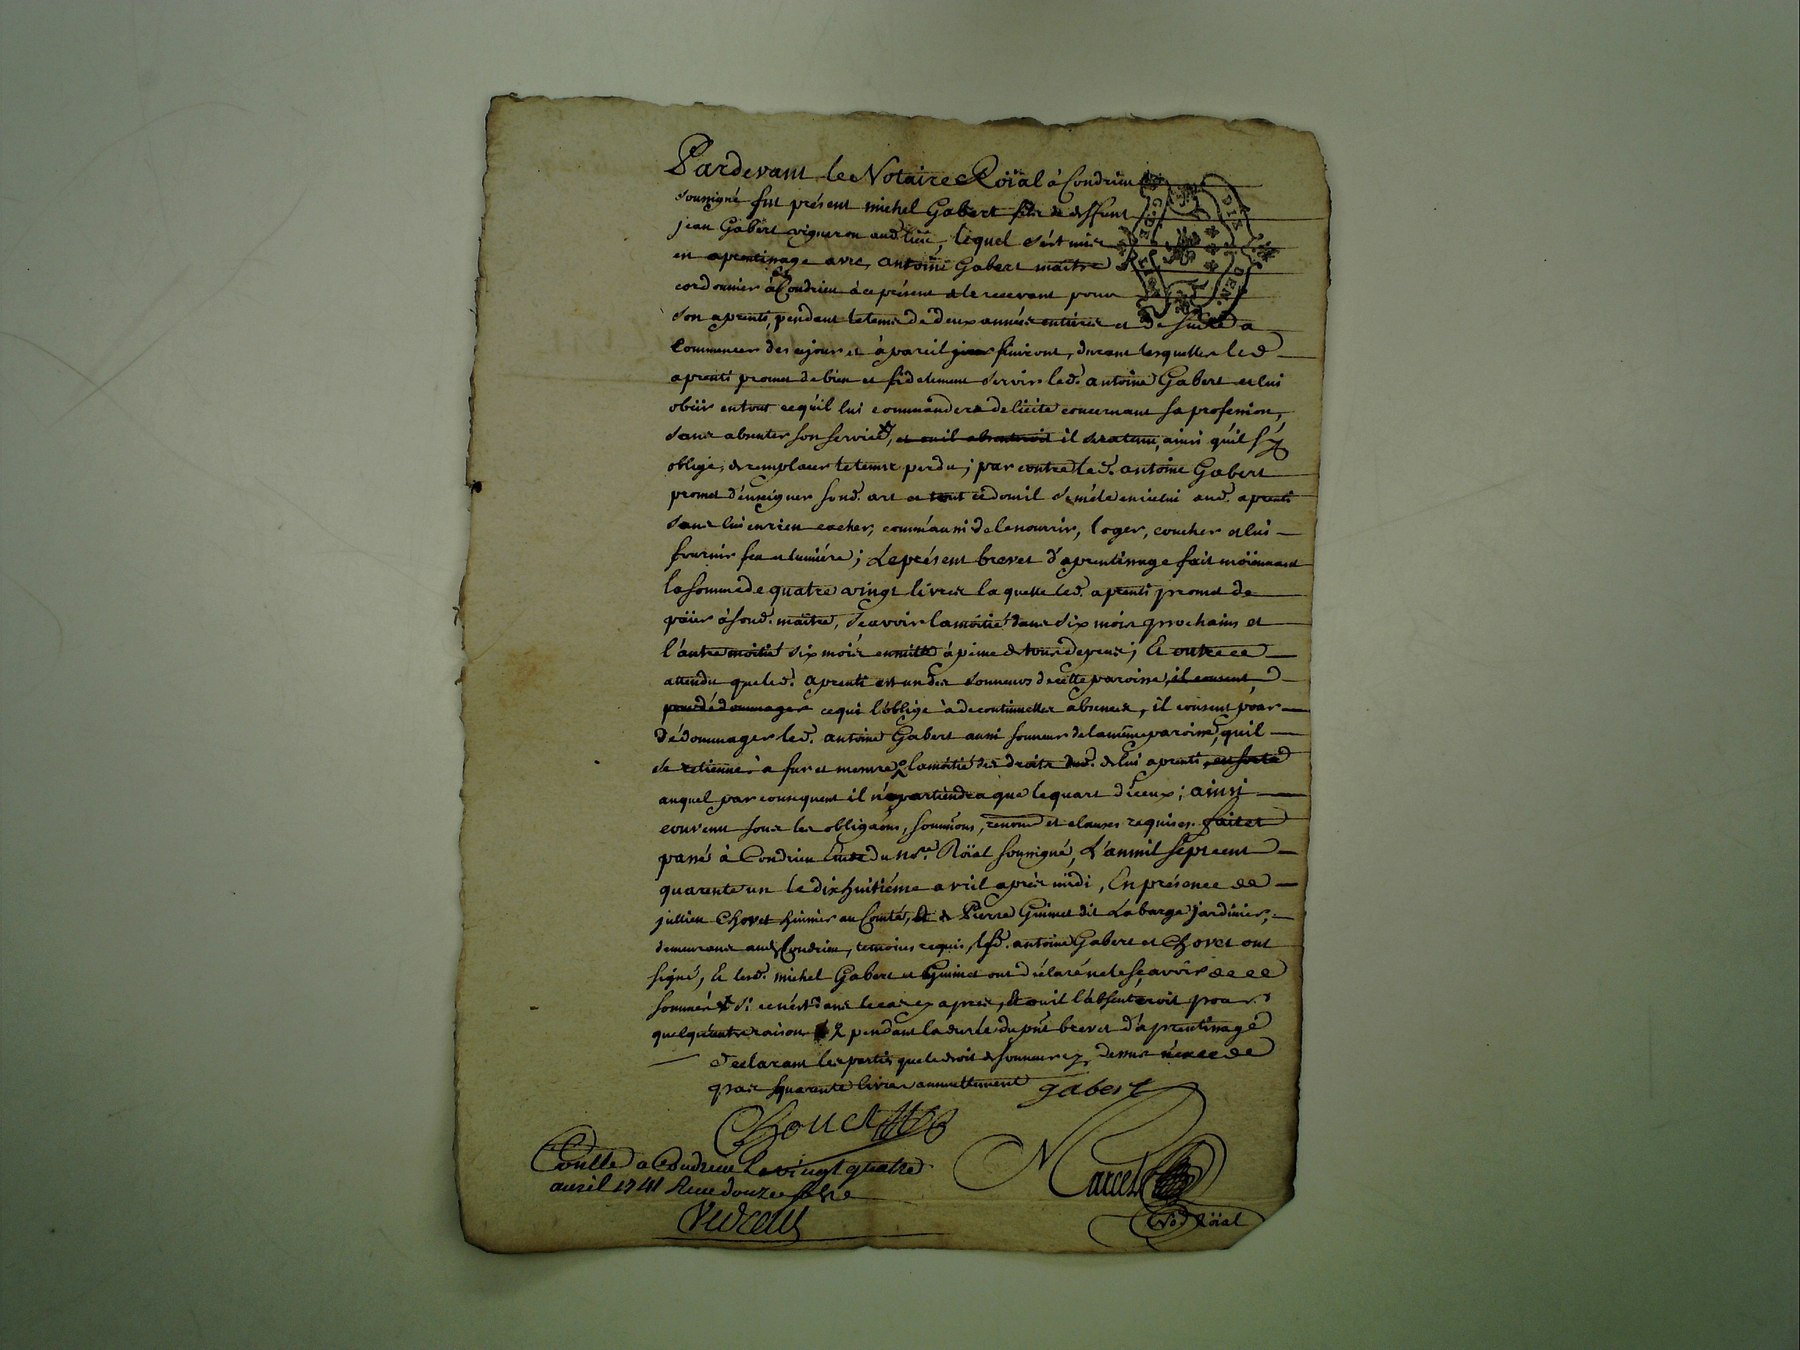 Pardevant le Notaire Roïal à Condrieu
soussigné fut présent michel Gabert fils de deffunt
jean Gabert vigneron aud. lieu, lequel s'est mis
en aprentissage avec antoine Gabert maître
cordonnier à Condrieu à ce présent & le recevant pour
son aprenti, pendant le tems de deux années entiéres et de suite a
commencer de ce jour et à pareil jour finiront, durant lesquelles led.
aprenti promet de bien et fidelement servir led. antoine Gabert et lui
obéir en tout ce qu'il lui commandera de licite concernant sa profession,
sans absenter son service, et ou il absenteroit il sera tenu, ainsi qu'il s'y
oblige, de remplacer le tems perdu; par contre led. antoine Gabert
promet d'enseigner sond. art et tout ce dont il se mêle en icelui aud. aprenti
sans lui en rien cacher, comm'aussi de le nourrir, loger, coucher et lui
fournir feu et lumiére; Le présent brevet d'aprentissage fait moïennant
la somme de quatre vingt livres laquelle led. aprenti promet de
païer à sond. maître, sçavoir la moitié dans six mois prochains et
l'autre moitié six mois ensuitte à peine de tous depens; Et outre ce
attendu que led. aprenti est un des sonneurs de cette paroisse, il consent
pour dédommager ce qui l'oblige à de continuelles absences, il consent pour
dédommager led. antoine Gabert aussi sonneur de la même paroisse, qu'il
se retienne à fur et mesure la moitié des droits de lui aprenti, en sorte
auquel par consequent il n'apartiendra que le quart d'iceux; ainsi
convenu sous les obligaons, soumions, renons et clauses requises. fait et
passé à Condrieu Etude du no.re Roïal soussigné, L'an mil sept cent
quarante un le dixhuitiéme avril après midi, En présence de
jullien Chovet huissier au Comté, & de Pierre Guimet dit Labarge jardinier,
demeurans aud. Condrieu, temoins requis, led. antoine Gabert et Chovet ont
signé, Et lesd. michel Gabert et Guimet ont déclaré ne le sçavoir de ce
sommés si ce n'est dans le cas cy apres, Et ou il l'absenteroit pour
quelqu'autre raison pendant la durée du pñt brevet d'aprentissage
declarant les parties que le droit de sonneur cy dessus n'excede
pas quarante livres annuellement gabert
Chouet
Marcel
Conllé a Condrieu le vingt quatre
avril 1741 Recu douze sols
Vincent
No.re Roïal